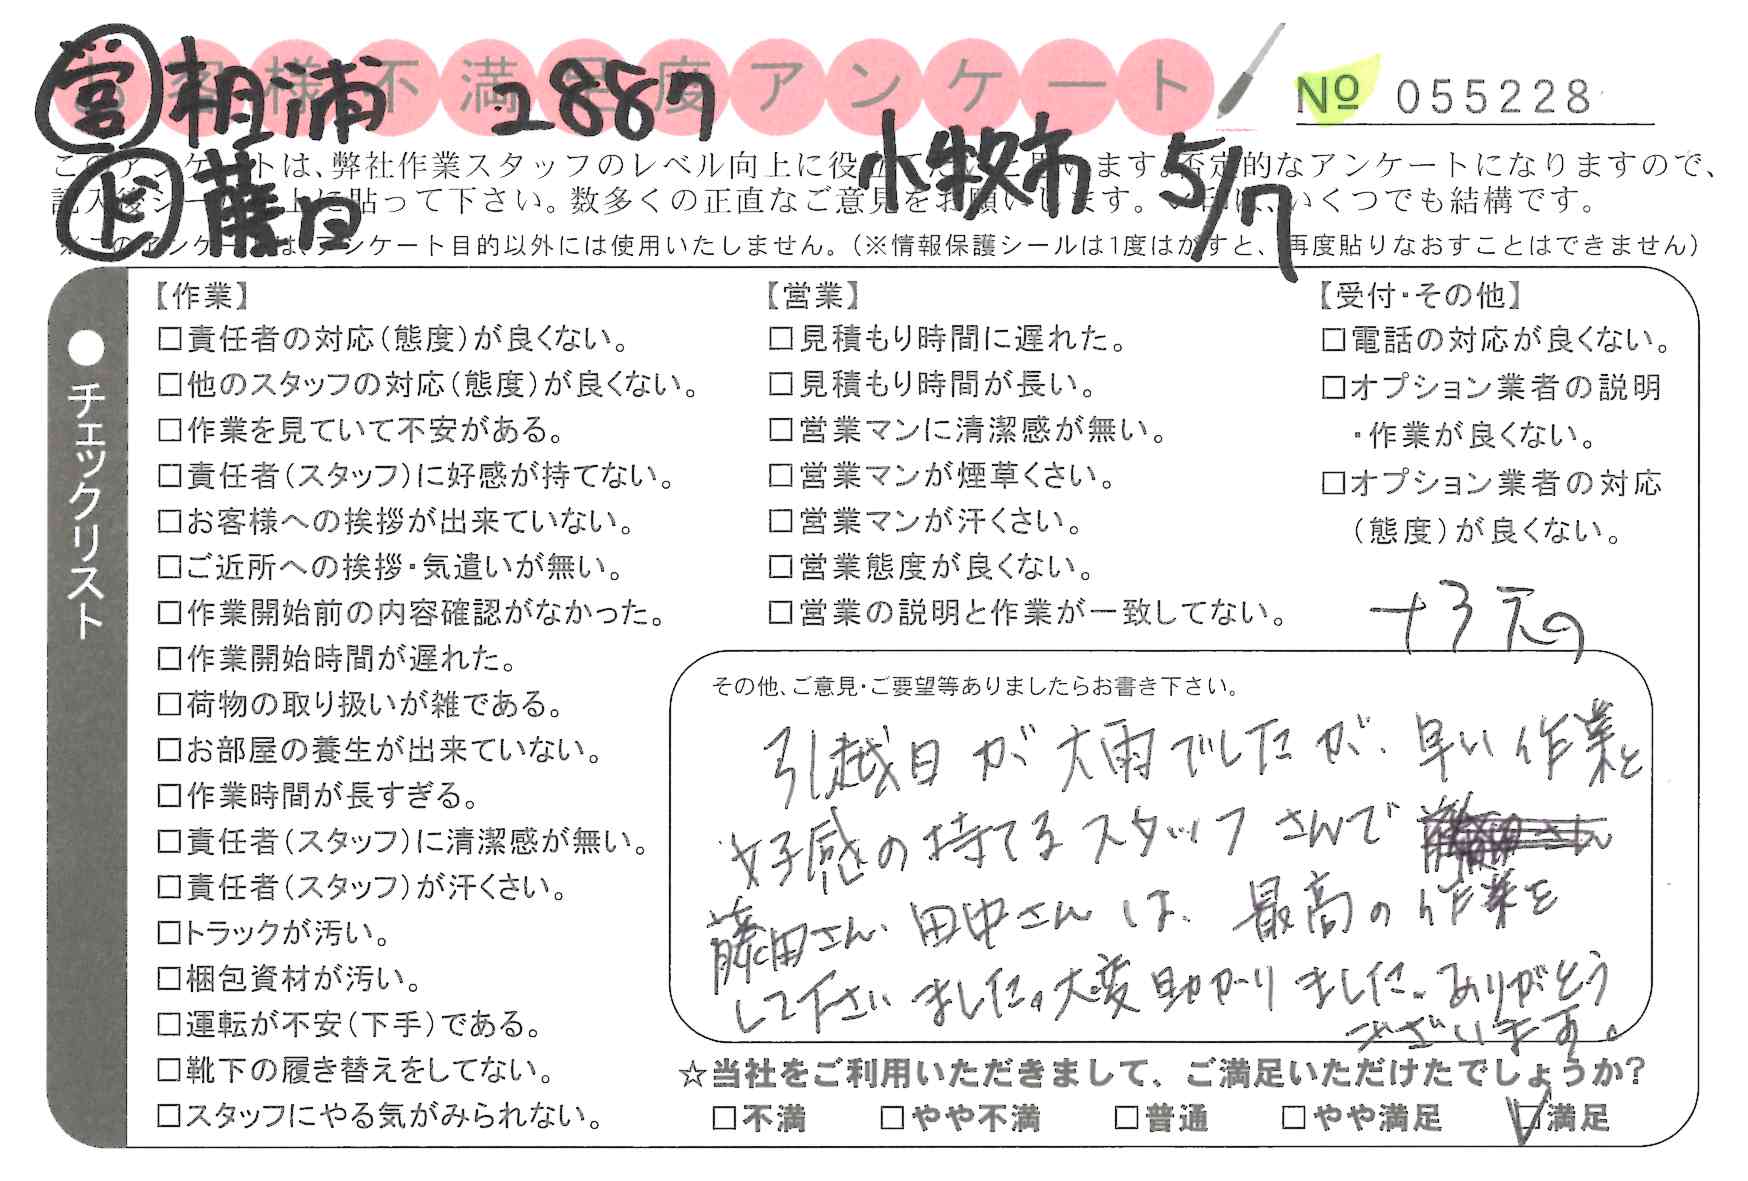 お客様不満足度アンケート
営 相浦 2887
№ 055228
小牧市 5/7
ド 藤田
このアンケートは、弊社作業スタッフのレベル向上に役立てたいと思います。否定的なアンケートになりますので、
記入後シールを上に貼って下さい。数多くの正直なご意見をお願いします。 、いくつでも結構です。
※このアンケートは、アンケート目的以外には使用いたしません。(※情報保護シールは1度はがすと、再度貼りなおすことはできません)
●チェックリスト
【作業】
□責任者の対応(態度)が良くない。
□他のスタッフの対応(態度)が良くない。
□作業を見ていて不安がある。
□責任者(スタッフ)に好感が持てない。
□お客様への挨拶が出来ていない。
□ご近所への挨拶・気遣いが無い。
□作業開始前の内容確認がなかった。
□作業開始時間が遅れた。
□荷物の取り扱いが雑である。
□お部屋の養生が出来ていない。
□作業時間が長すぎる。
□責任者(スタッフ)に清潔感が無い。
□責任者(スタッフ)が汗くさい。
□トラックが汚い。
□梱包資材が汚い。
□運転が不安(下手)である。
□靴下の履き替えをしてない。
□スタッフにやる気がみられない。
【営業】
□見積もり時間に遅れた。
□見積もり時間が長い。
□営業マンに清潔感が無い。
□営業マンが煙草くさい。
□営業マンが汗くさい。
□営業態度が良くない。
□営業の説明と作業が一致してない。
【受付・その他】
□電話の対応が良くない。
□オプション業者の説明
・作業が良くない。
□オプション業者の対応
(態度)が良くない。
その他、ご意見・ご要望等ありましたらお書き下さい。
引越日が大雨でしたが、早い作業と
好感の持てるスタッフさんで
藤田さん、田中さんは、最高の作業を
して下さいました。大変助かりました。ありがとう
ございます。
☆当社をご利用いただきまして、ご満足いただけたでしょうか?
□不満 □やや不満 □普通 □やや満足 ☑満足